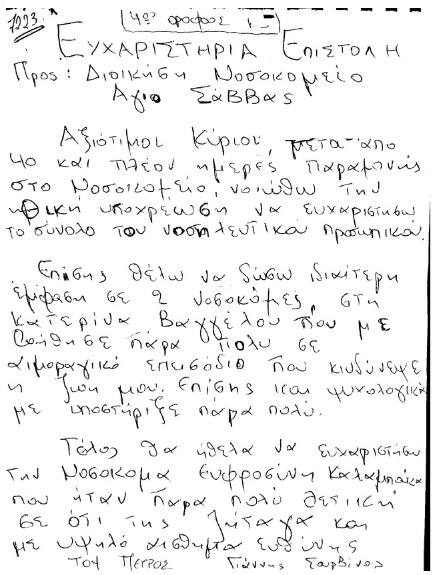 1223. 4ος όροφος
ΕΥΧΑΡΙΣΤΗΡΙΑ ΕΠΙΣΤΟΛΗ
Προς: Διοικήση Νοσοκομείο
Αγιο ΣάΒΒας
Αξιότιμοι Κύριοι, μετα απο
40 και πλέον ημερές παραμονής
στο Νοσοκομείο, νοιώθω την
ηθική υποχρέωση να ευχαριστησω
το σύνολο του νοσηλευτικά προσωπικά.
Επίσης θέλω να δώσω ιδιαίτερη
έμφαση σε 2 νοσοκόμες, στη
Κατερίνα Βαγγέλου που με
βοήθησε πάρα πολυ σε
αιμοραγικό επεισόδιο που κινδύνεψε
η ζωή μου. Επίσης και ψυχολογικά
με υποστήριξε πάρα πολύ.
Τέλος θα ήθελα να ευχαριστήσω
την Νοσοκομα Ευφροσύνη Καλαμπάκα
που ήταν πάρα πολύ θετική
σε ότι της ζήταγα και
με υψηλό αισθημα ευθύνης
ΤΟΥ ΠΕΤΡΟΣ Γιάννης Σαρβίνος